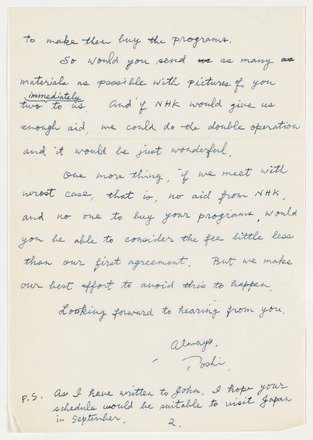 to make them buy the programs.
So would you send us as many as
materials as possible with pictures of you
immediately
two to us. And if NHK would give us
enough aid, we could do the double operation
and it would be just wonderful.
One more thing, if we meet with
worst case, that is, no aid from NHK,
and no one to buy your programs, would
you be able to consider the fee little less
than our first agreement. But we make
our best effort to avoid this to happen.
Looking forward to hearing from you.
Always,
Toshi.
P.S. As I have written to John, I hope your
schedule would be suitable to visit Japan
in September.
2.